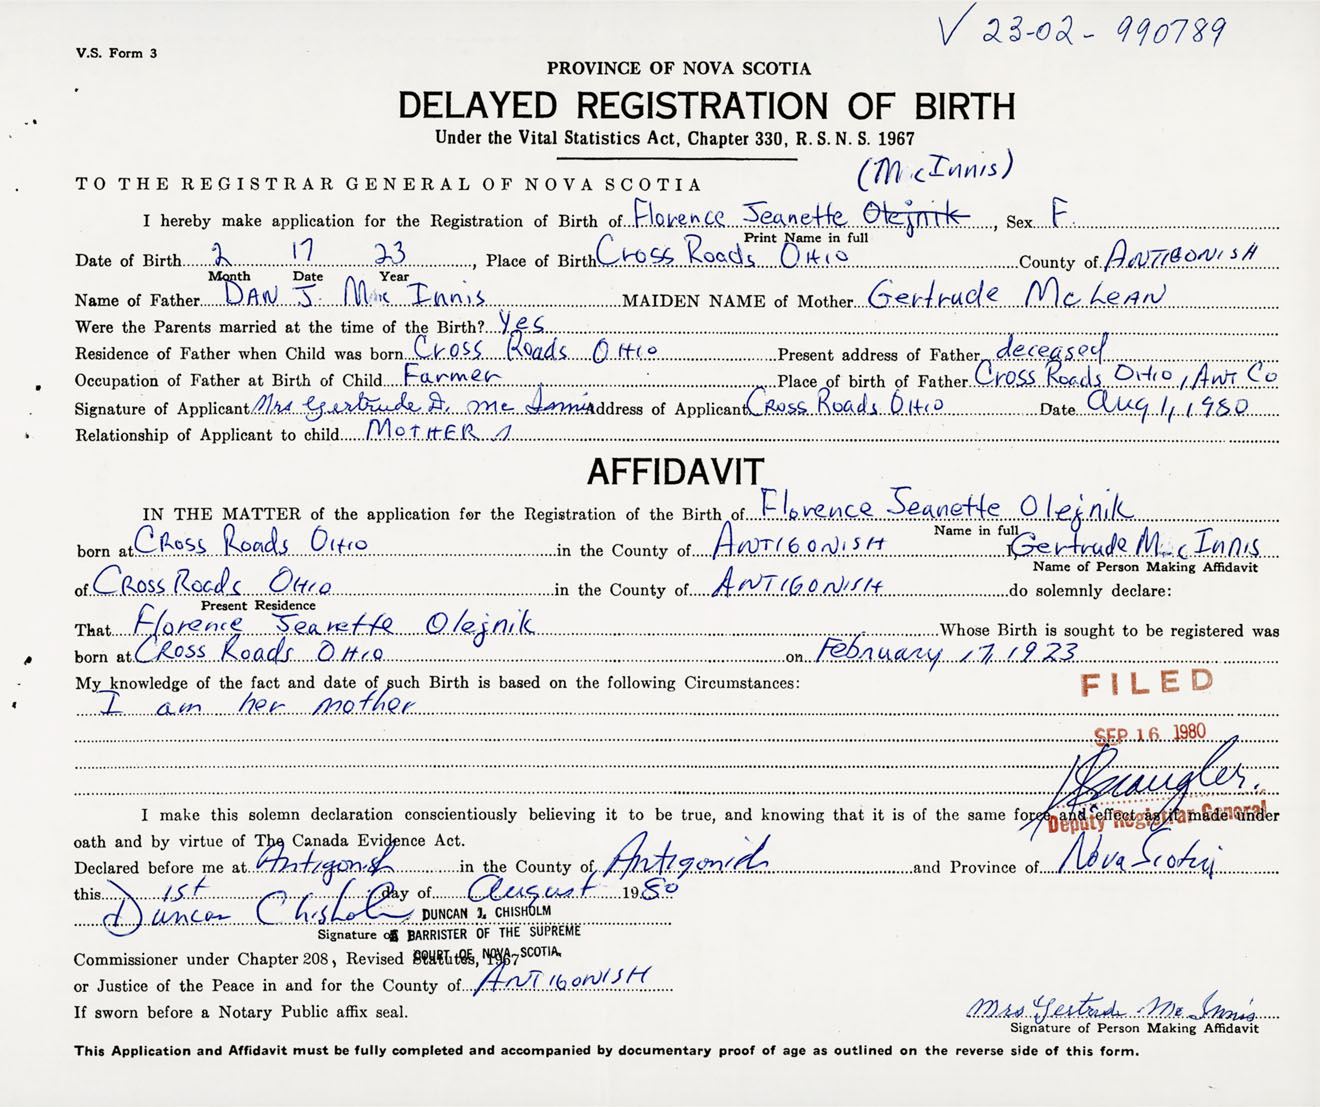 V 23-02-990789
V.S. Form 3
PROVINCE OF NOVA SCOTIA
DELAYED REGISTRATION OF BIRTH
Under the Vital Statistics Act, Chapter 330, R. S. N. S. 1967
(MacInnis)
TO THE REGISTRAR GENERAL OF NOVA SCOTIA
I hereby make application for the Registration of Birth of Florence Jeanette Olejnik, Sex F.
Print Name in full
Date of Birth 2 17 23, Place of Birth Cross Roads Ohio County of ANTIGONISH
Month Date Year
Name of Father DAN J. Mac Innis MAIDEN NAME of Mother Gertrude McLEAN
Were the Parents married at the time of the Birth? Yes
Residence of Father when Child was born Cross Roads OHIO Present address of Father deceased
Occupation of Father at Birth of Child Farmer Place of birth of Father Cross Roads OHIO, ANT Co
Signature of Applicant Mrs Gertrude D. Mc Innis Address of Applicant Cross Roads OHIO Date Aug 1, 1980
Relationship of Applicant to child MOTHER
AFFIDAVIT
IN THE MATTER of the application for the Registration of the Birth of Florence Jeanette Olejnik
Name in full
born at Cross Roads OHIO in the County of ANTIGONISH I, Gertrude MacInnis
Name of Person Making Affidavit
of Cross Roads OHIO in the County of ANTIGONISH do solemnly declare:
Present Residence
That Florence Jeanette Olejnik Whose Birth is sought to be registered was
born at Cross Roads OHIO on February 17, 1923
My knowledge of the fact and date of such Birth is based on the following Circumstances:
I am her mother
FILED
SEP 16 1980
Deputy Registrar General
I make this solemn declaration conscientiously believing it to be true, and knowing that it is of the same force and effect as if made under
oath and by virtue of The Canada Evidence Act.
Declared before me at Antigonish in the County of Antigonish and Province of Nova Scotia
this 1st day of August 1980
Duncan Chisholm DUNCAN J. CHISHOLM
Signature of A BARRISTER OF THE SUPREME
COURT OF NOVA SCOTIA
Commissioner under Chapter 208, Revised Statutes, 1967
or Justice of the Peace in and for the County of ANTIGONISH
If sworn before a Notary Public affix seal.
Mrs Gertrude Mc Innis
Signature of Person Making Affidavit
This Application and Affidavit must be fully completed and accompanied by documentary proof of age as outlined on the reverse side of this form.